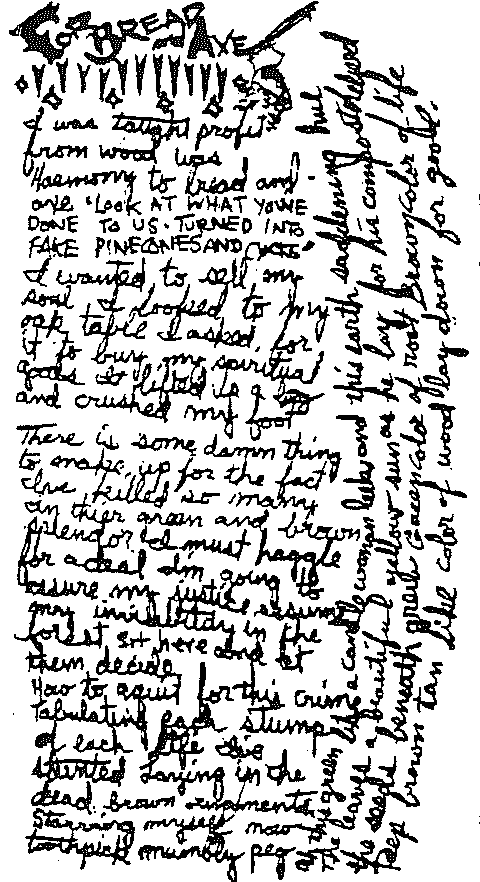 CORBREAD AXE
I was taught profit
from wood was
Harmony to bread and
axe "LOOK AT WHAT YOU'VE
DONE TO US. TURNED INTO
FAKE PINECONES AND
I wanted to sell my
soul I looked to my
oak table I asked for
it to buy my spiritual
goods It lifted up a leg
and crushed my foot
There is some damn thing
to make up for the fact
Ive killed so many
in thier green and brown
splendor I must haggle
for a deal Im going to
assure my justice assume
my invisibility in the
forest sit here and let
them decide
How to aquit for this crime
Tabulating each stump
of each life
stunted Laying in the
dead brown
Starring myself now
toothpick mumbly peg
this green like a cane to woman and this earth saddening
The leaves a beautiful yellow sun as he lay for his
the seeds beneath green Greencolor of root Browncolor of life
Deep brown tan like color of wood lay down for good.